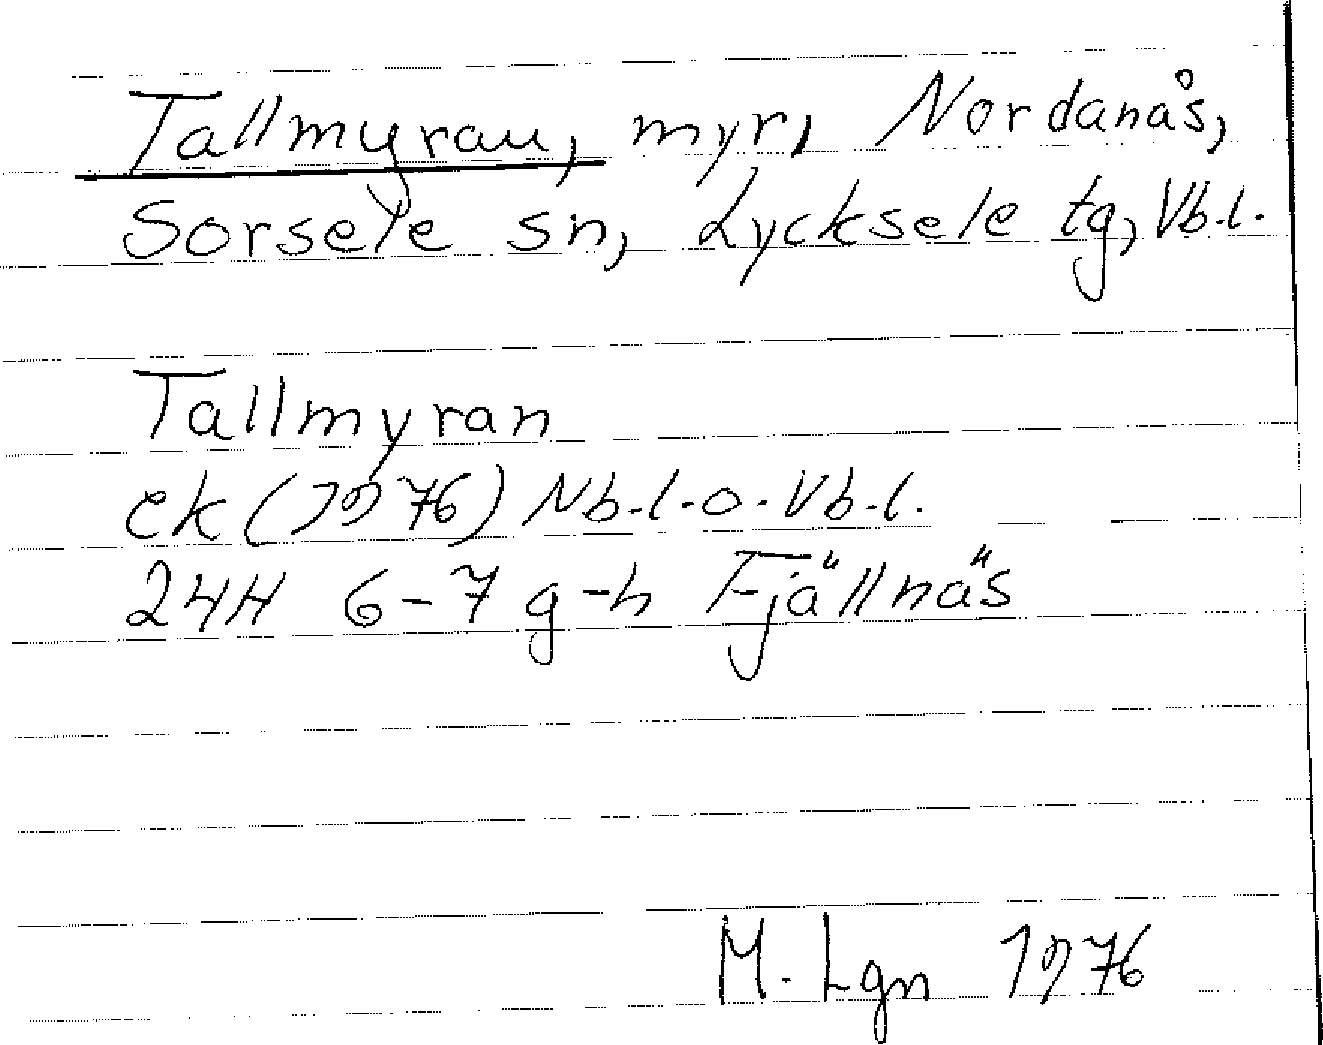 Tallmyran, myr, Nordanås,
Sorsele sn, Lycksele tg, Vb.l.
Tallmyran
ek (1976) Nb.l.o.Vb.l.
24H 6-7 g-h Fjällnäs
M. Lgn 1976